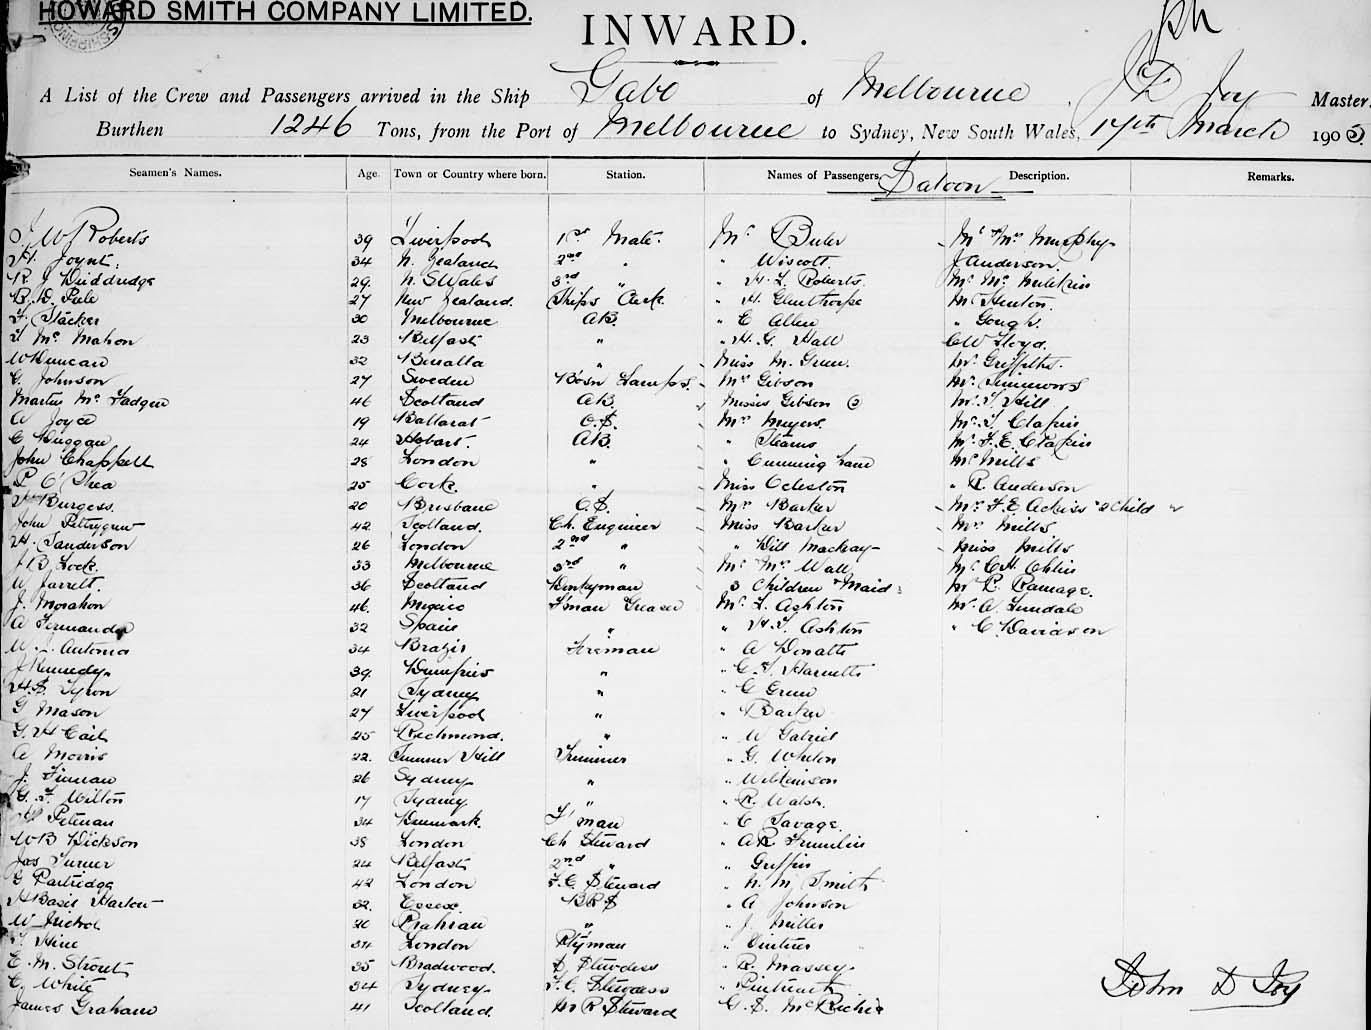 HOWARD SMITH COMPANY LIMITED.
INWARD.
A List of the Crew and Passengers arrived in the Ship Gabo of Melbourne, J D Joy Master,
Burthen 1246 Tons, from the Port of Melbourne to Sydney, New South Wales, 14th March 1905
Seamen's Names. Age. Town or Country where born. Station. Names of Passengers. Saloon Description. Remarks.
W Roberts 39 Liverpool 1st Mate. Mr Buler Mr & Mrs Murphy
H. Joynt. 34 N. Zealand 2nd " " Wiscott J Anderson.
R J Duddridge 29. N. S Wales 3rd " " H. L. Roberts. Mr Mrs
B. D. Pule 27 New Zealand. Ships Clerk. " H. Glenthorpe Mr Henton.
F. Stacker 30 Melbourne AB. " E Allen " Gough.
T Mc Mahon 23 Belfast " " H. G. Hall C W Lloyd.
W Duncan 32 Benalla " Miss M. Green. Mr. Griffiths.
G. Johnson 27 Sweden Bosn Lamps. Mrs Gibson Mr. Simmons
Martin Mc Fadgen 46 Scotland AB. Misses Gibson Mr. T. Hill
A Joyce 19 Ballarat O.S. Mrs Meyers Mr. T. Clapin
C Duggan 24 Hobart. AB. " Stearns Mr. F. E. Clapin
John Chappell 28 London " " Cumming Lane Mr Mills
P. O'Shea 25 Cork. " Miss Ocleston " R. Anderson
Burgess. 20 Brisbane O.S. Mrs Barker Mrs F. E. & Child
John Pettygrew 42 Scotland. Ch. Engineer Miss Barker Mrs Mills
H. Sanderson 26 London 2nd " " Dill Mackay Miss Mills
J B Lock. 33 Melbourne 3rd " Mr Mrs Wall Mr C. H.
W Jarrett. 36 Scotland Donkeyman 3 Children & Maid Mr R. Ramage.
J. Monahon 46. Mexico F'man Greaser Mr. L. Ashton Mr. A. Lunsdale
A Fernandez 32 Spain " " H. T. Ashton " C. Davidson
W. J. Antonio 34 Brazil Fireman " A Donatti
J Kennedy. 39. Dumfries " " G. H. Harnetts
H. S. Tyron 21 Sydney " " G Green
G Mason 27 Liverpool " " Barker
G. H Cail 25 Richmond. " " W Gabriel
A Morris 22. Summer Hill Trimmer " G. Whiton
J. Finnan 26 Sydney " " Wilkinson
G. F. Wilton 17 Sydney " " R. Walsh.
Petman 34 Denmark. F'man " C Savage.
W B Dickson 38 London Ch Steward " A R Trumlin
Jas Turner 24 Belfast 2nd " " Griffin
G Partridge 42 London F.C. Steward " N. M. Smith
H Basil Harlow 32. Essex B R S " A Johnson
W Nichol 20 Prahran " " J. Miller
T Hine 34 London P'tyman "
E. M. Strout 35 Braidwood. S Stewdess " R. Massey.
C. White 34 Sydney. F.C. Stewdess "
James Graham 41 Scotland Mr R Steward G. S. McRichie
John D Joy